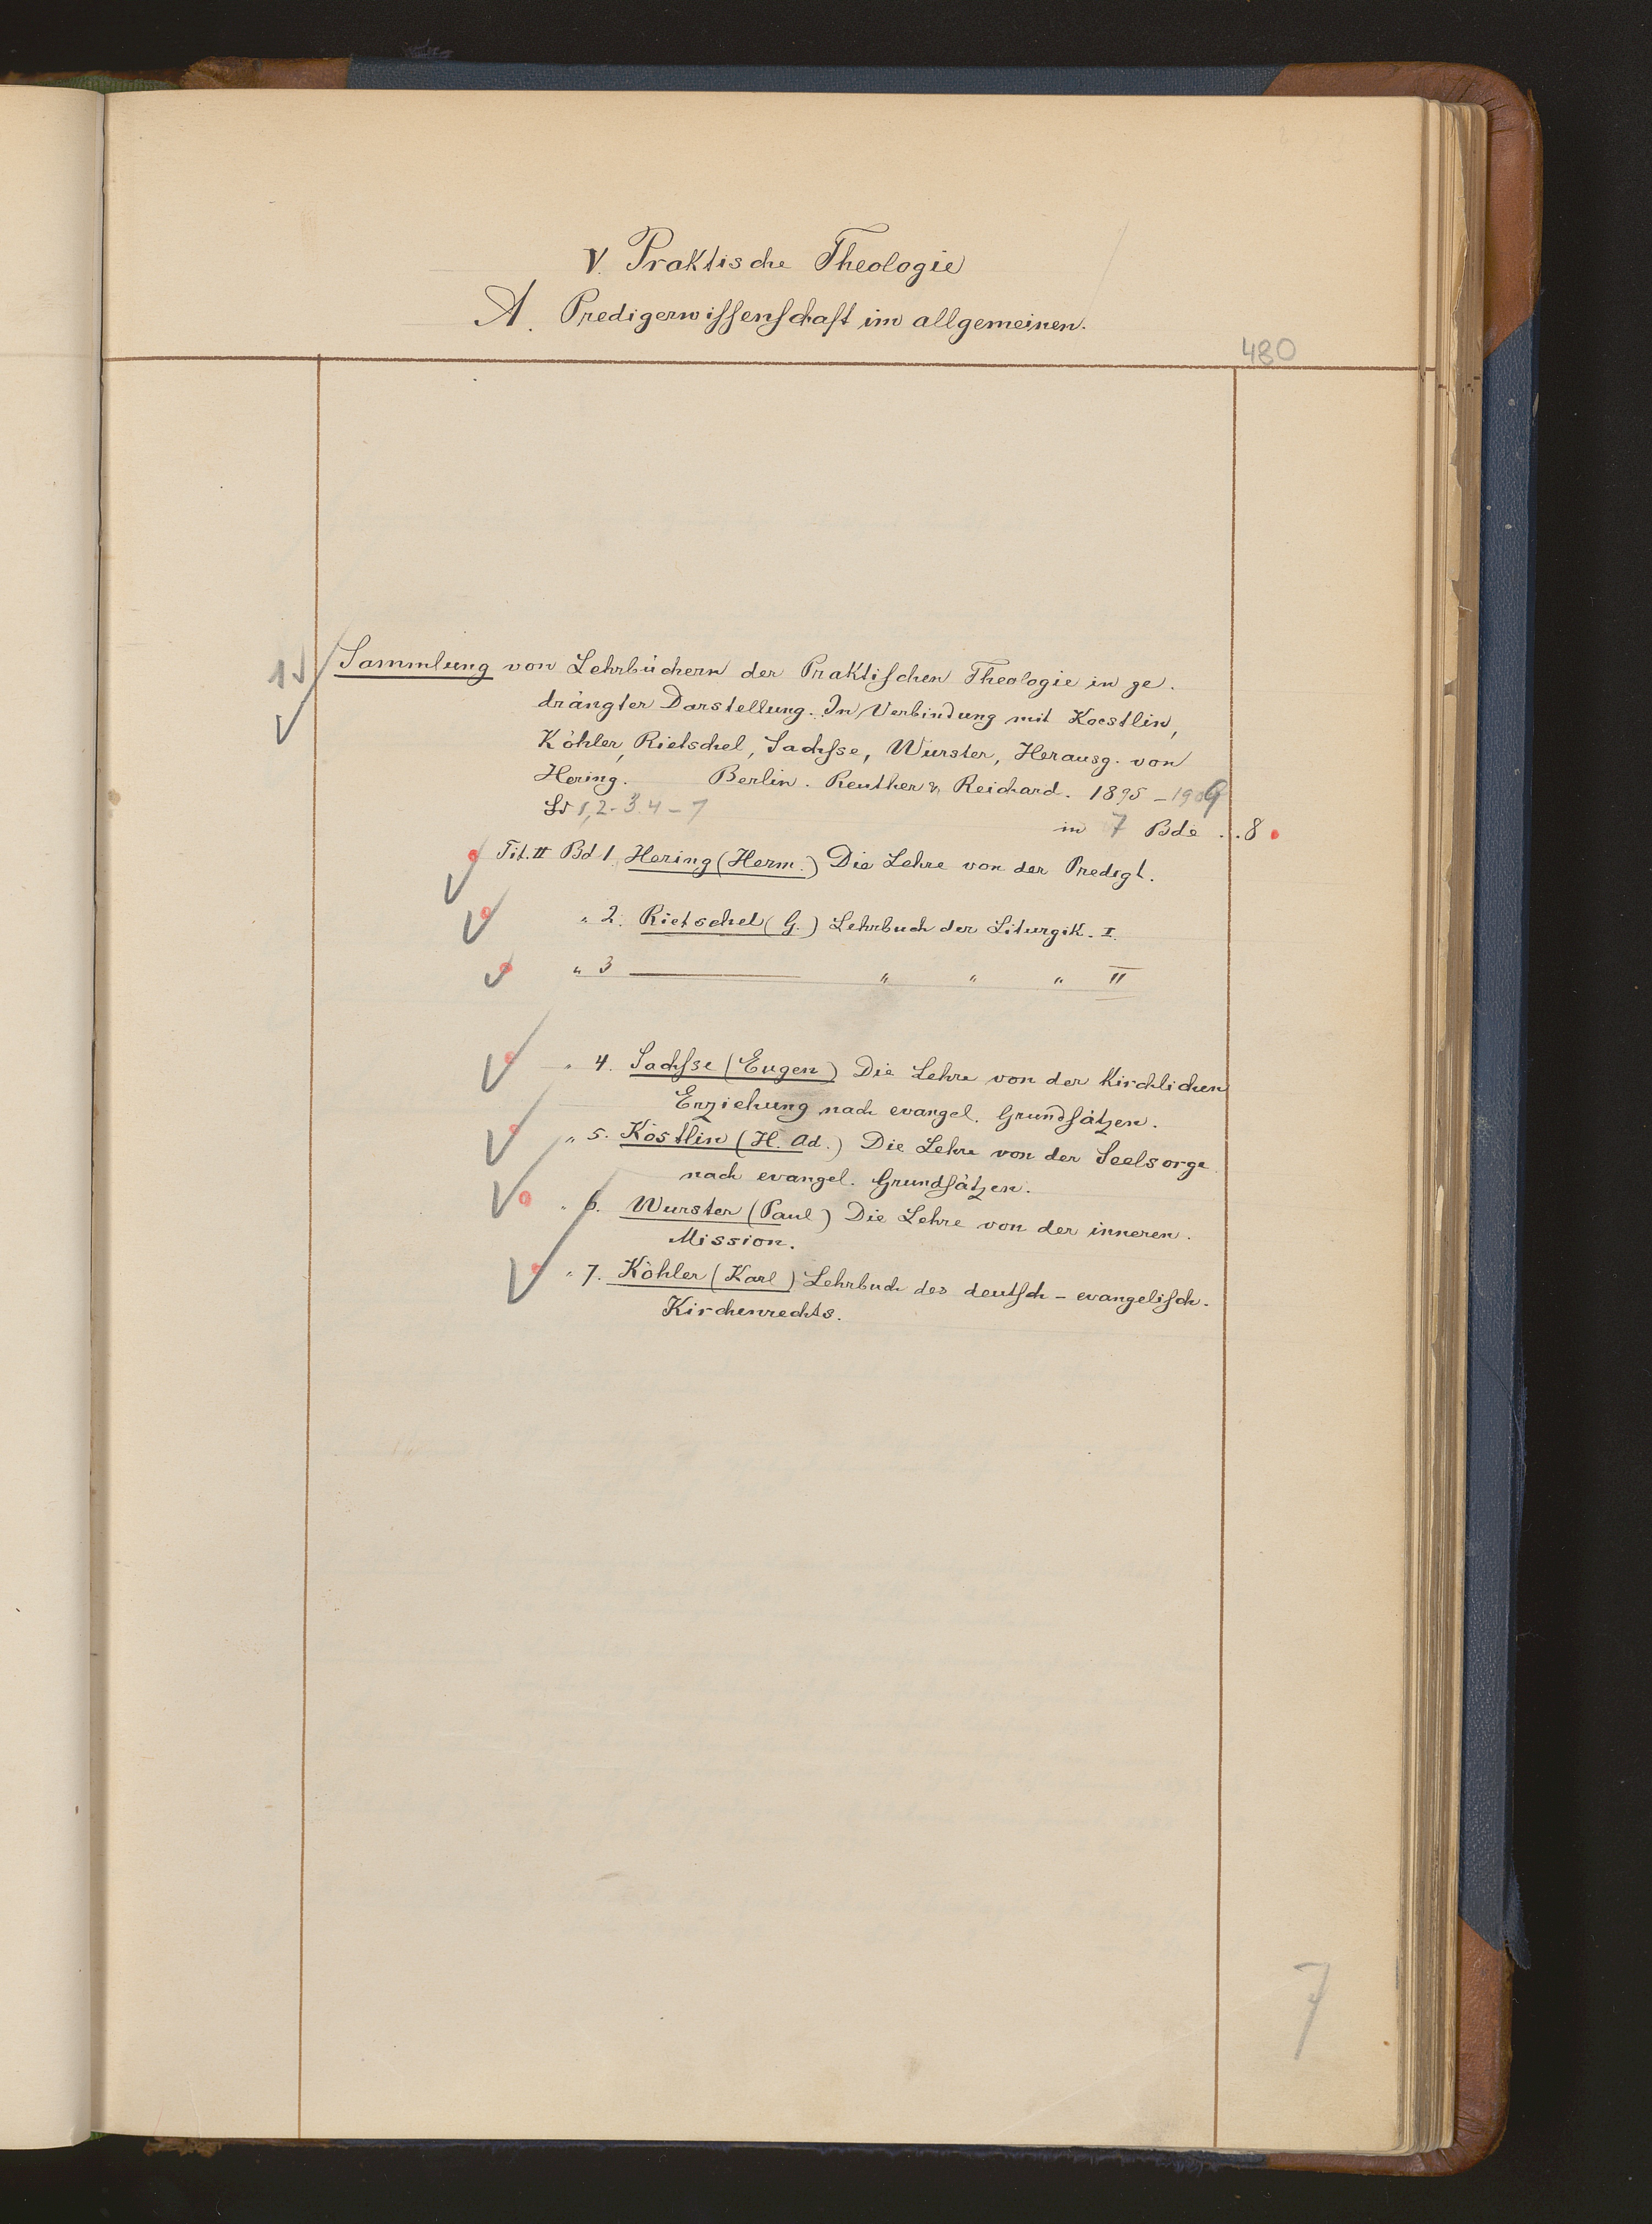 V. Praktische Theologie
A. Predigerwissenschaft im allgemeinen.
480
1 Sammlung von Lehrbüchern der Praktischen Theologie in ge-
drängter Darstellung. In Verbindung mit Koestlin,
Köhler, Rietschel, Sachsse, Wurster, Herausg. von
Hering. Berlin. Reuther & Reichard. 1895 - 1909
Bd 1,2-3.4-7
in 7 Bde . . 8
Tit. II Bd 1. Hering (Herm.) Die Lehre von der Predigt.
" 2. Rietschel (G.) Lehrbuch der Liturgik. I.
" 3 — " " " II
" 4. Sachsse (Eugen) Die Lehre von der Kirchlichen
Erziehung nach evangel. Grundsätzen.
" 5. Köstlin (H. Ad.) Die Lehre von der Seelsorge
nach evangel. Grundsätzen.
" 6. Wurster (Paul) Die Lehre von der inneren.
Mission.
" 7. Köhler (Karl) Lehrbuch des deutsch-evangelisch.
Kirchenrechts.
7